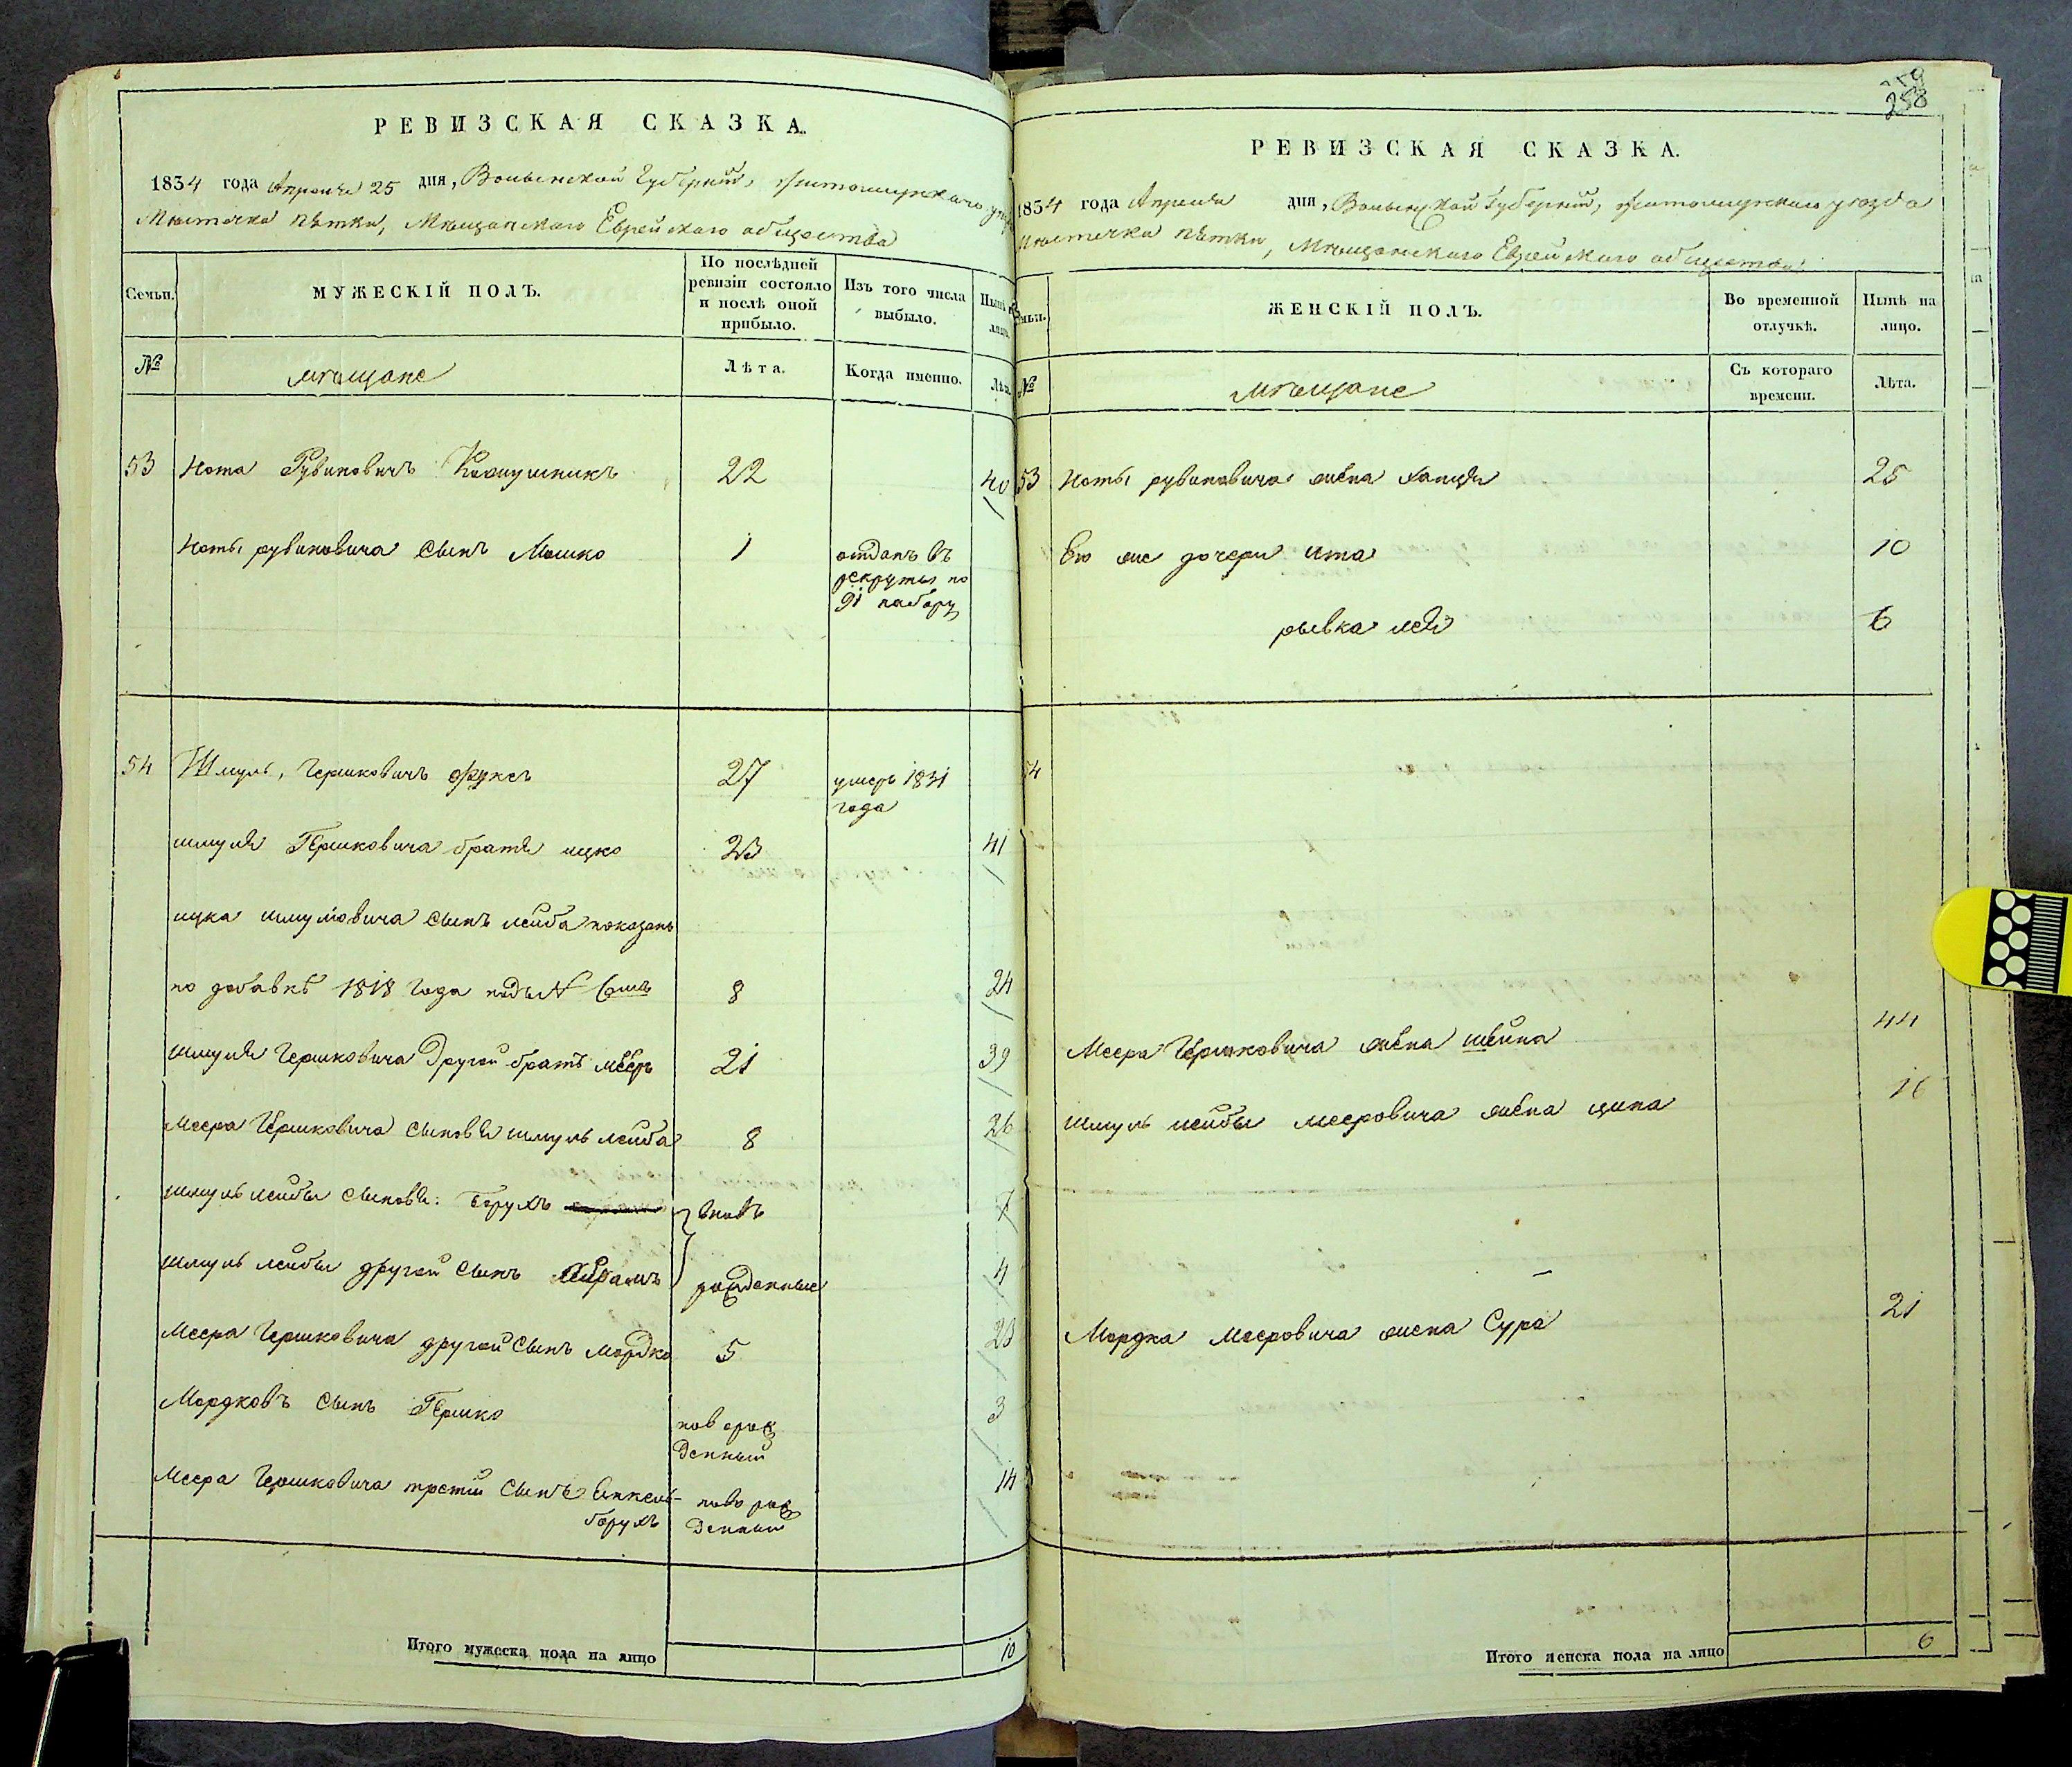 РЕВИЗСКАЯ СКАЗКА.
1834 года Апреля 25 дня, Волынской Губерніи, Житомирскаго уезда
Местечка Пѣтки, Мѣщанскаго Еврейскаго общества
Семьи.
МУЖЕСКІЙ ПОЛЪ.
По послѣдней ревизіи состояло и послѣ оной прибыло.
Изъ того числа выбыло.
Нынѣ на лицо.
№
мѣщане
Лѣта.
Когда именно.
Лѣта.
53 Нота Рувиновичъ 22 40
Ноты рувиновича сынъ Мошко 1 отданъ въ
рекруты по
91 набору
54 Шмуль, Гершковичъ Фуксъ 27 умеръ 1831
года
шмуля Гершковича братъ ицко 23 41
ицка шмулiовича сынъ лейба показанъ
по добавкѣ 1818 года подъ № 8 24
шмуля Гершковича Другой братъ мееръ 21 39
Меера Гершковича сыновья шмуль лейба 8 26
Шмуль лейбы сыновья: Борухъ вновь 7
шмуль лейбы другой сынъ Абрамъ рожденные 4
Меера Гершковича другой сынъ Мордко 5 23
Мордковъ сынъ Гершко новорож
денный 3
Меера Гершковича третій сынъ Янкель-
борухъ новорож
денный 14
Итого мужеска пола на лицо 10
258
РЕВИЗСКАЯ СКАЗКА.
1834 года Апреля дня, Волынской Губерніи, Житомирскаго уезда
Местечка Пѣтки, Мѣщанскаго Еврейскаго общества
Семьи.
ЖЕНСКІЙ ПОЛЪ.
Во временной отлучкѣ.
Нынѣ на лицо.
№
мѣщане
Съ котораго времени.
Лѣта.
53 Ноты рувиновича жена ханця 25
Его же дочери ита 10
рывка лея 6
54
Меера Гершковича жена шейна 44
шмуль лейбы мееровича жена ципа 16
Мордка Мееровича жена Сура 21
Итого женска пола на лицо 6